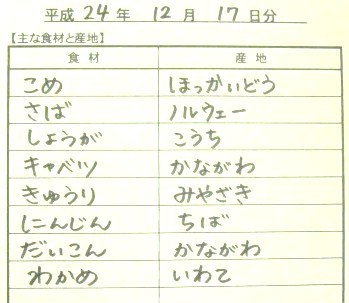 平成 24 年 12 月 17 日分
【主な食材と産地】
食材 産地
こめ ほっかいどう
さば ノルウェー
しょうが こうち
キャベツ かながわ
きゅうり みやざき
にんじん ちば
だいこん かながわ
わかめ いわて